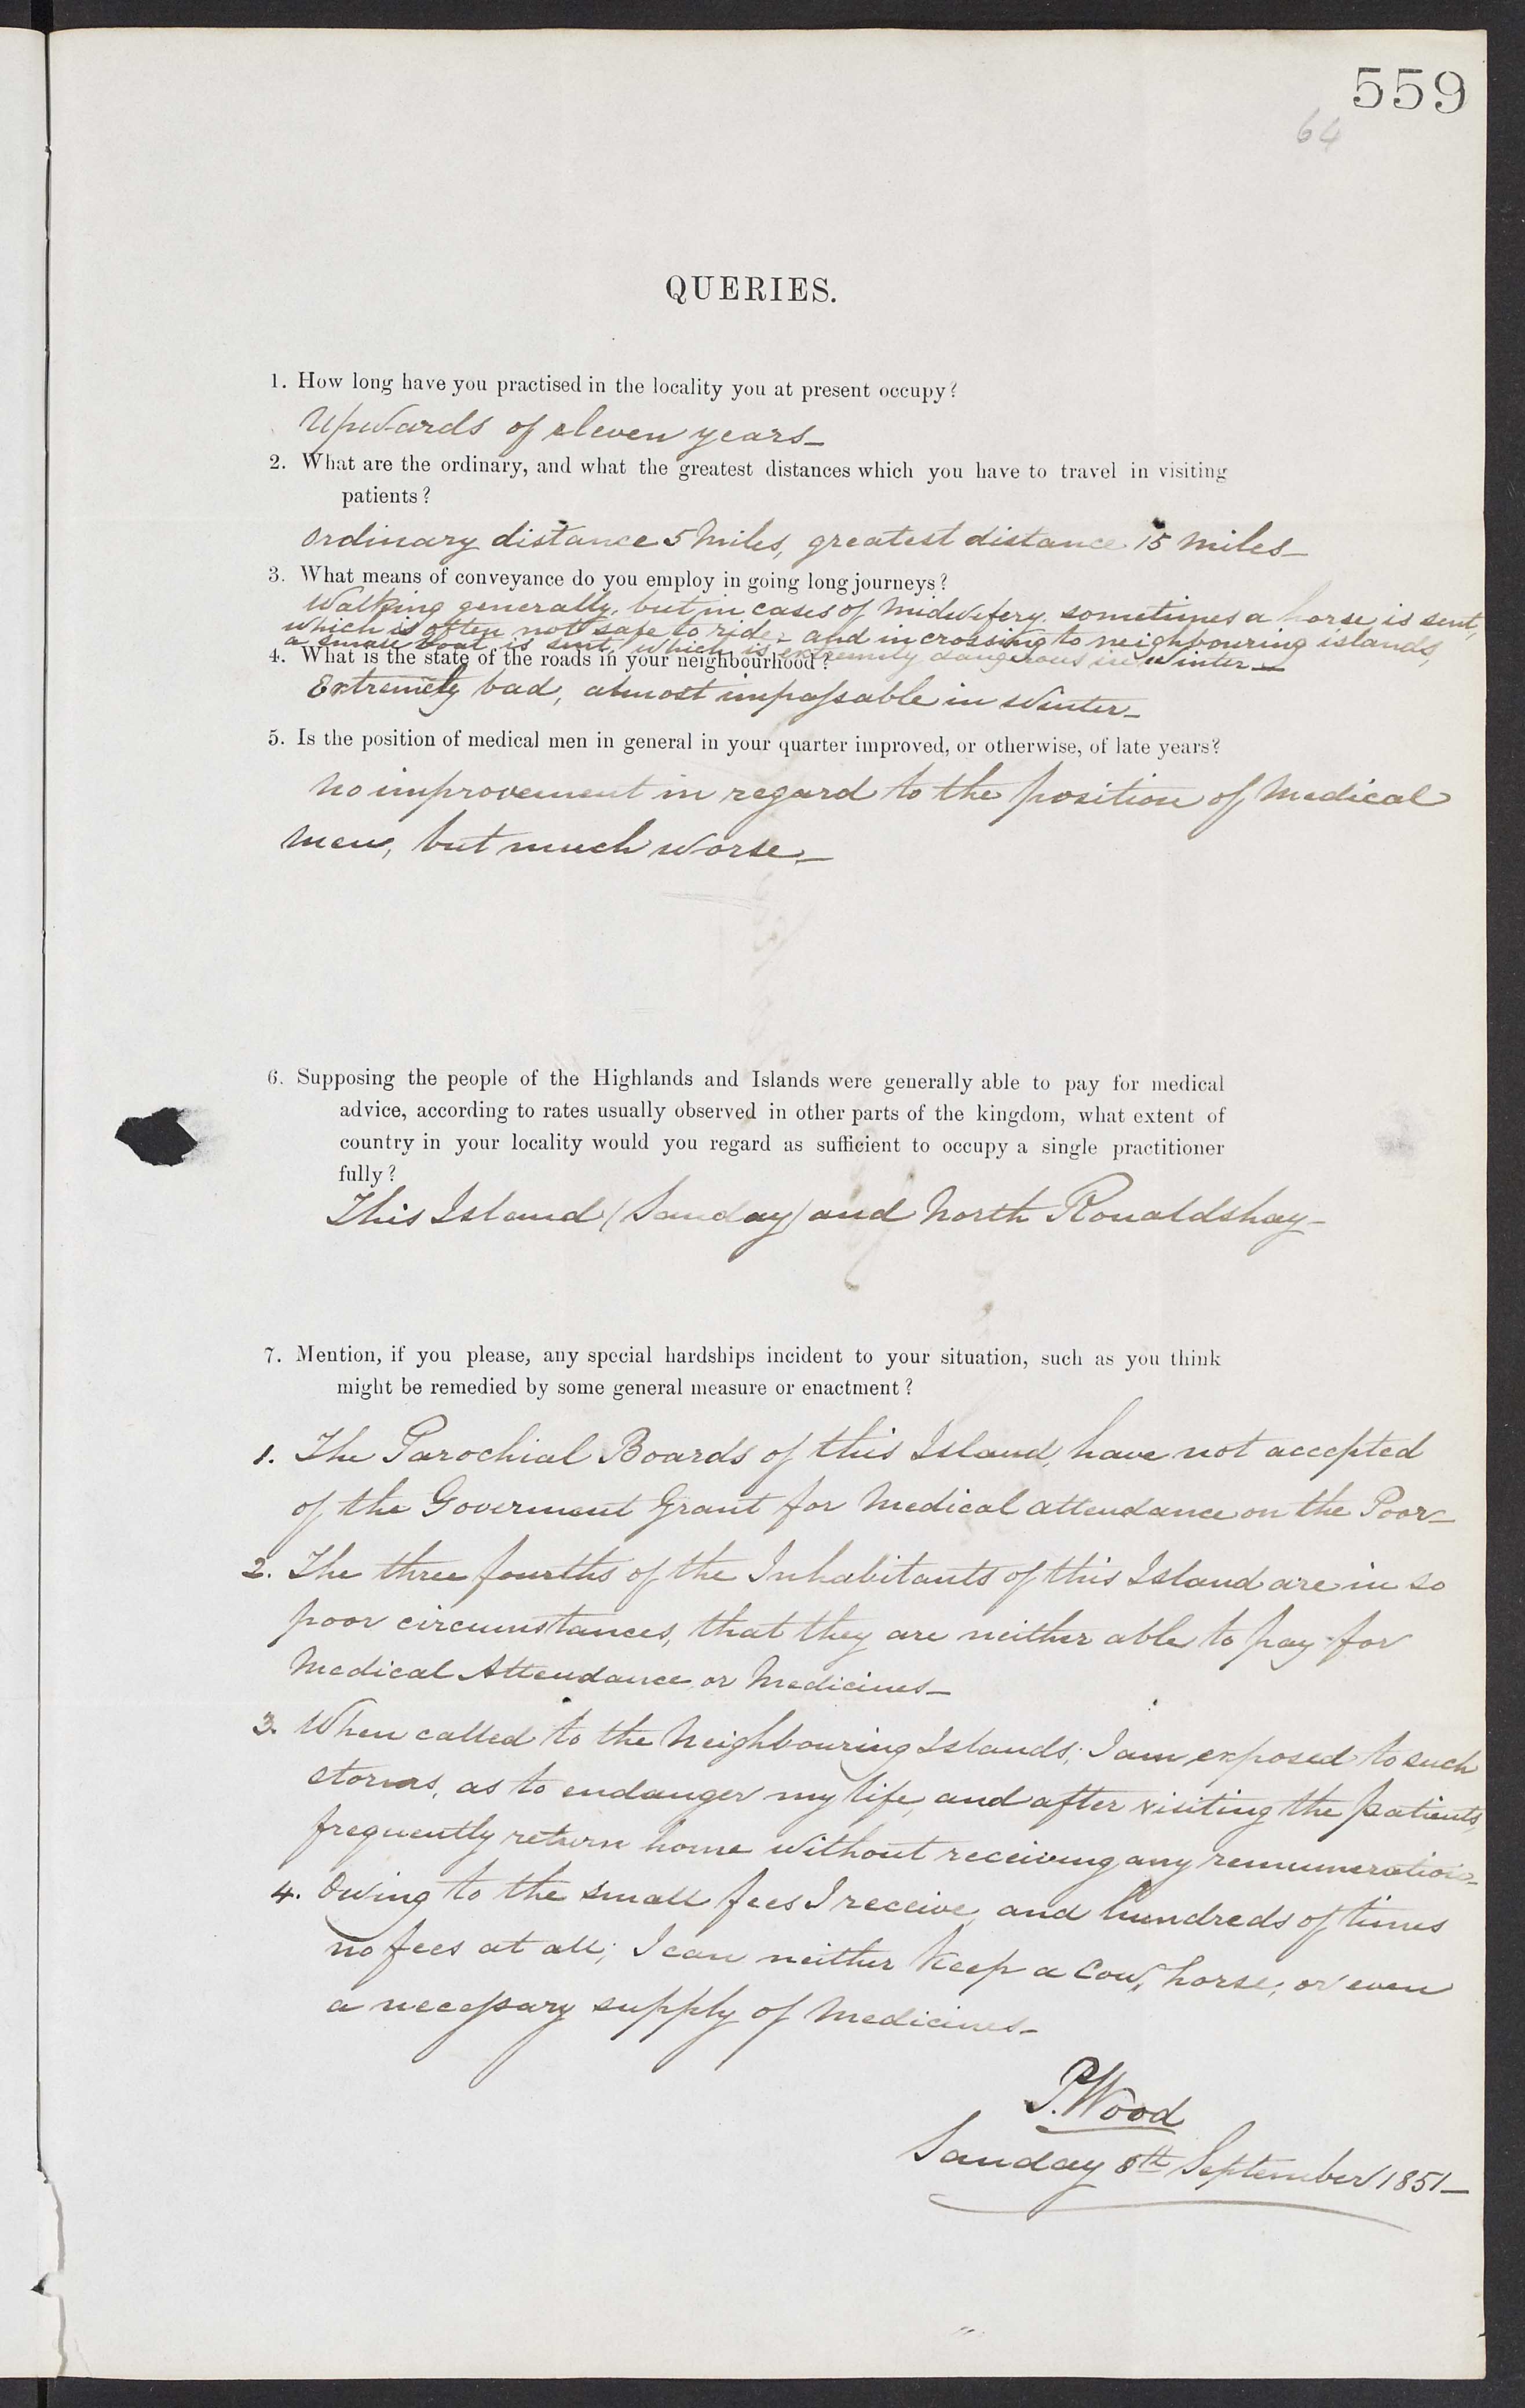 559
64
QUERIES.
1. How long have you practised in the locality you at present occupy?
Upwards of eleven years_
2. What are the ordinary, and what the greatest distances which you have to travel in visiting
patients?
Ordinary distance 5 Miles, greatest distance 15 Miles_
3. What means of conveyance do you employ in going long journeys?
Walking generally, but in cases of Midwifery, sometimes a horse is sent,
which is often not safe to ride, and in crossing to neighbouring islands,
a small boat is sent, which is extremely dangerous in Winter_
4. What is the state of the roads in your neighbourhood?
Extremely bad, almost impassable in Winter_
5. Is the position of medical men in general in your quarter improved, or otherwise, of late years?
No improvement in regard to the position of Medical
Men, but much worse_
6. Supposing the people of the Highlands and Islands were generally able to pay for medical
advice, according to rates usually observed in other parts of the kingdom, what extent of
country in your locality would you regard as sufficient to occupy a single practitioner
fully?
This Island (Sanday) and North Ronaldshay_
7. Mention, if you please, any special hardships incident to your situation, such as you think
might be remedied by some general measure or enactment?
1. The Parochial Boards of this Island, have not accepted
of the Goverment Grant for Medical attendance on the Poor_
2. The three fourths of the Inhabitants of this Island are in so
poor circumstances, that they are neither able to pay for
Medical Attendance or Medicines_
3. When called to the Neighbouring Islands, I am exposed to such
storms, as to endanger my life, and after visiting the patients,
frequently return home without receiving any remuneration_
4. Owing to the small fees I receive, and hundreds of times
no fees at all; I can neither keep a Cow, horse, or even
a necessary supply of Medicines_
P. Wood
Sanday 8th September 1851_